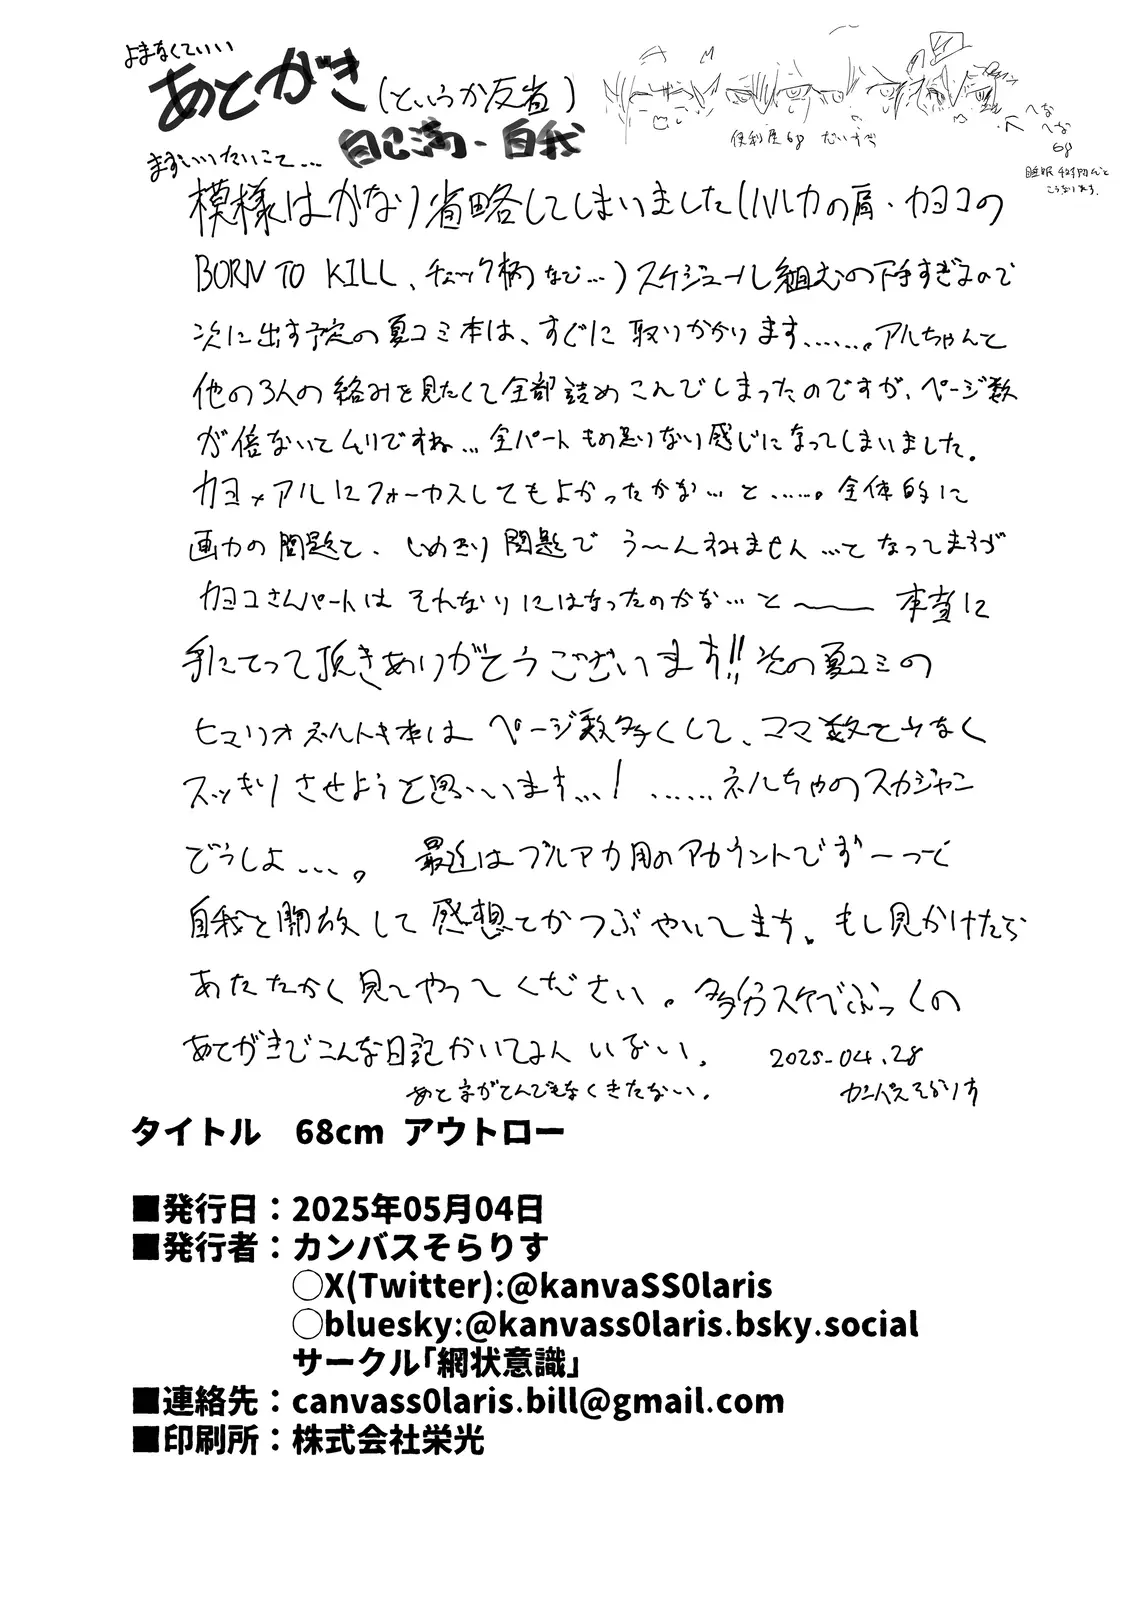 よまなくていい
あとがき(というか反省)
自己満-自我
便利屋68 だいすき
へな
へな
68
まずいいたいこと…
模様はかなり省略してしまいました(ハルカの肩・カヨコの
BORN TO KILL、チェック柄など…)スケジュール組むの下手すぎるので
次に出す予定の夏コミ本は、すぐに取りかかります、……。アルちゃんと
他の3人の絡みを見たくて全部詰めこんでしまったのですが、ページ数
が倍ないとムリですね…全パートもの足りない感じになってしまいました。
カヨ×アルにフォーカスしてもよかったかな…と……。全体的に
画力の問題と、しめきり問題でう〜んすみません…となってますが
カヨコさんパートはそれなりにはなったのかな…と〜〜 本当に
手にとって頂きありがとうございます!!次の夏コミの
ヒマリオネルトキ本はページ数多くして、コマ数を少なく
スッキリさせようと思います…!……ネルちゃのスカジャン
どうしよ…。 最近はブルアカ用のアカウントでず〜っと
自我を開放して感想とかつぶやいてます。もし見かけたら
あたたかく見てやってください。多分スケでぶっくの
あとがきでこんな日記かいてる人いない。 2025-04.28
あと字がとんでもなくきたない。 カンバスそらりす
タイトル 68cm アウトロー
■発行日:2025年05月04日
■発行者:カンバスそらりす
○X(Twitter):@kanvaSS0laris
○bluesky:@kanvass0laris.bsky.social
サークル「網状意識」
■連絡先:canvass0laris.bill@gmail.com
■印刷所:株式会社栄光